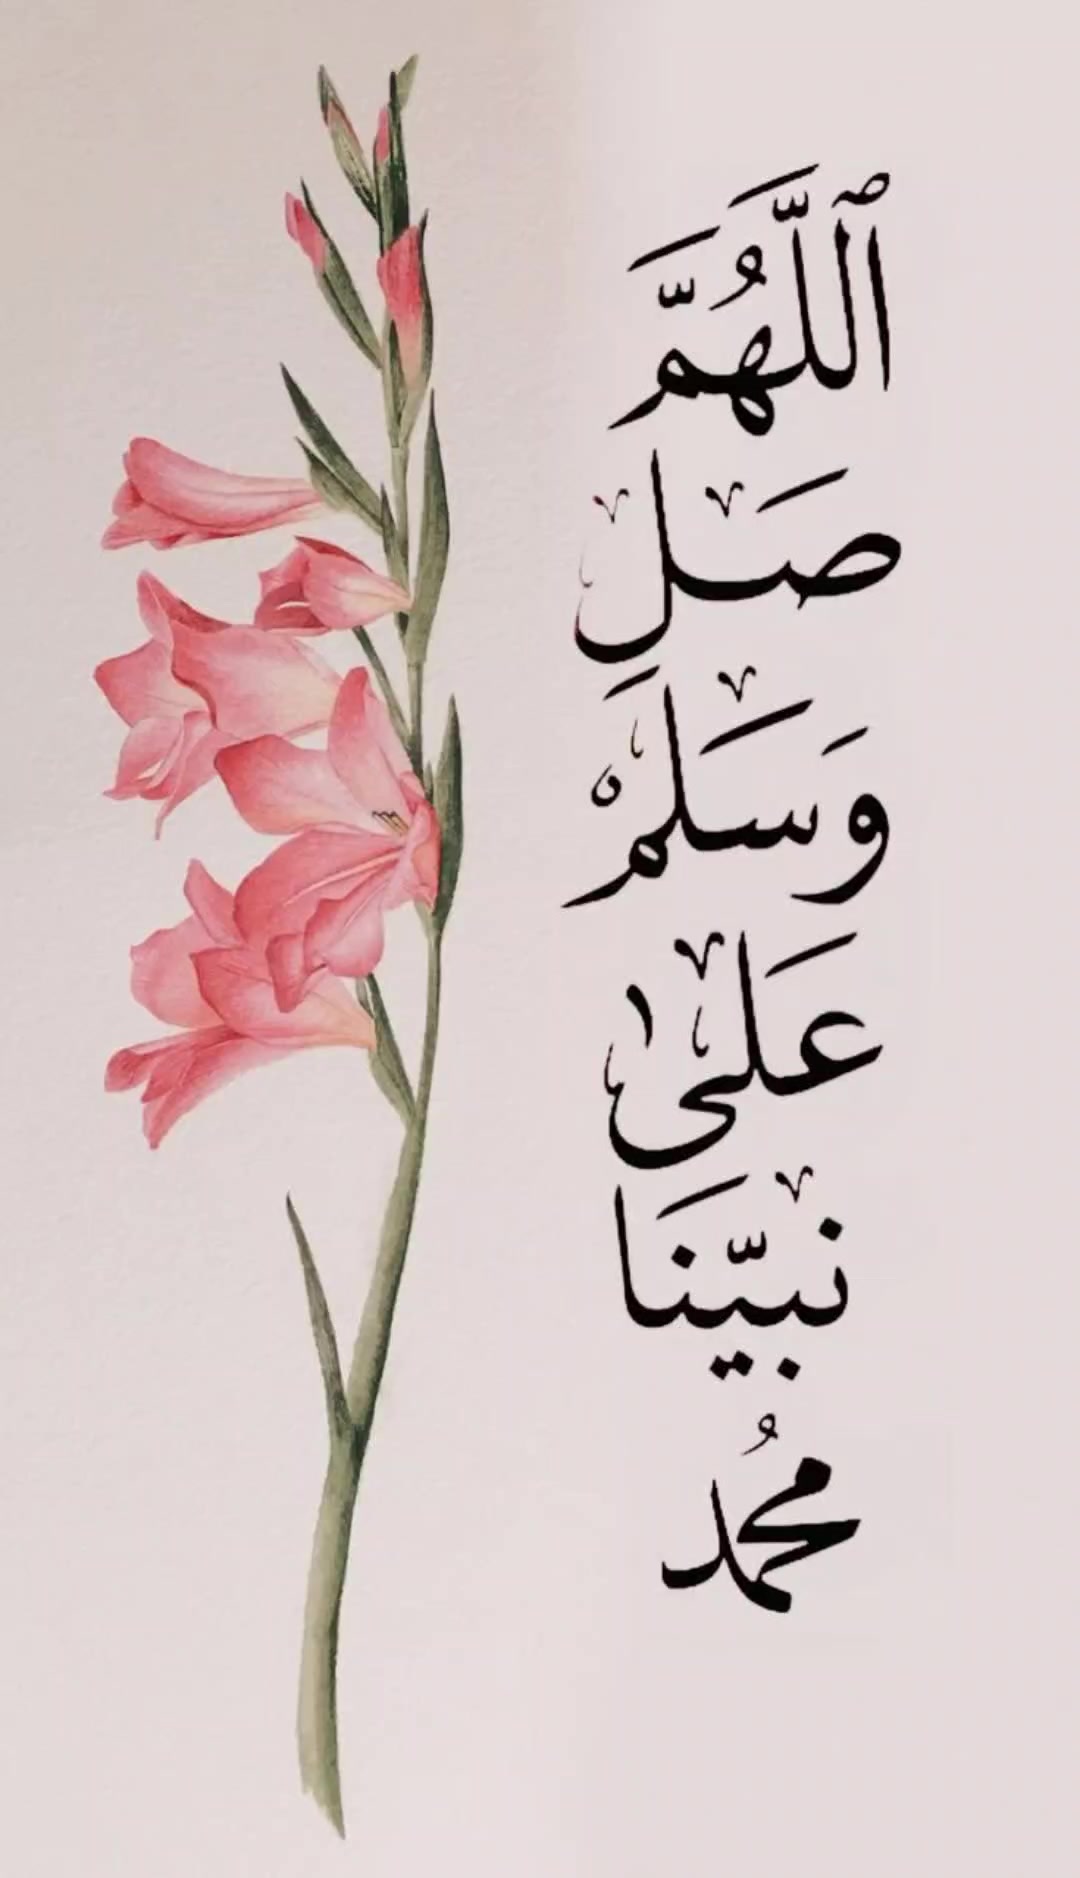 ٱللَّهُمَّ
صَلِ
وَسَلمْ
عَلى
نبيّنَا
محمُد